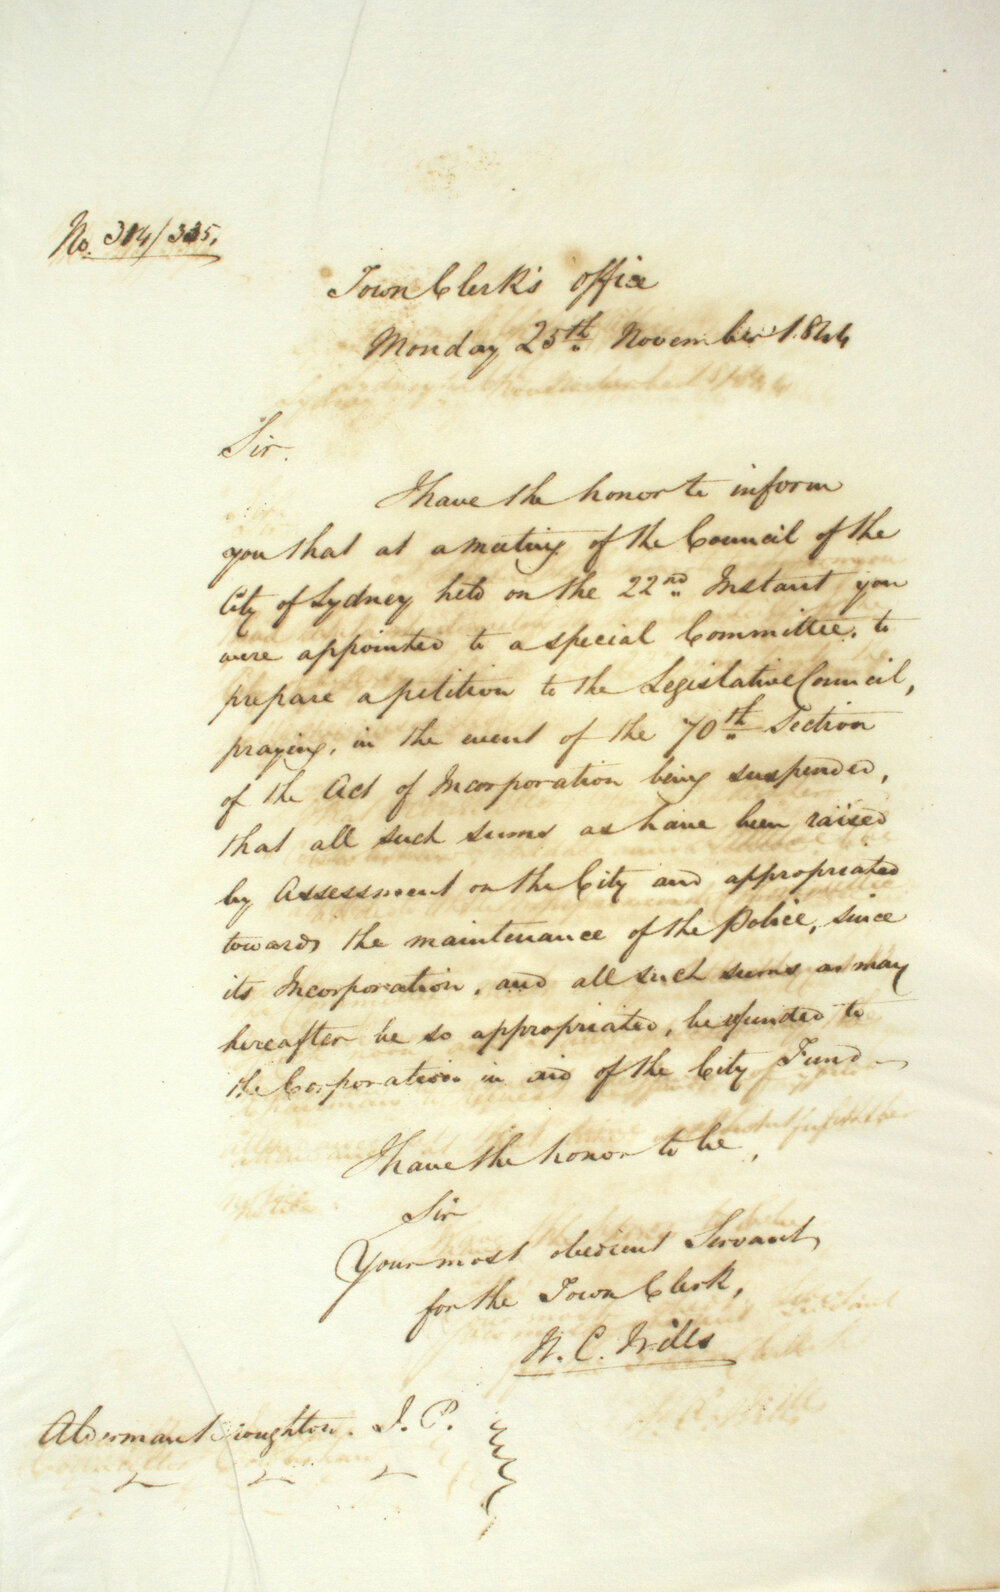 No. 314/335.
Town Clerk's Office
Monday 25th November 1844
Sir.
I have the honor to inform
you that at a meeting of the Council of the
City of Sydney held on the 22nd Instant you
were appointed to a special Committee, to
prepare a petition to the Legislative Council,
praying, in the event of the 70th Section
of the Act of Incorporation being suspended,
that all such sums as have been raised
by Assessment on the City and appropriated
towards the maintenance of the Police, since
its Incorporation, and all such sums as may
hereafter be so appropriated, be refunded to
the Corporation in aid of the City Fund
I have the honor to be,
Sir
Your most obedient Servant,
for the Town Clerk,
W. C. Wills
Alderman Broughton. J. P.